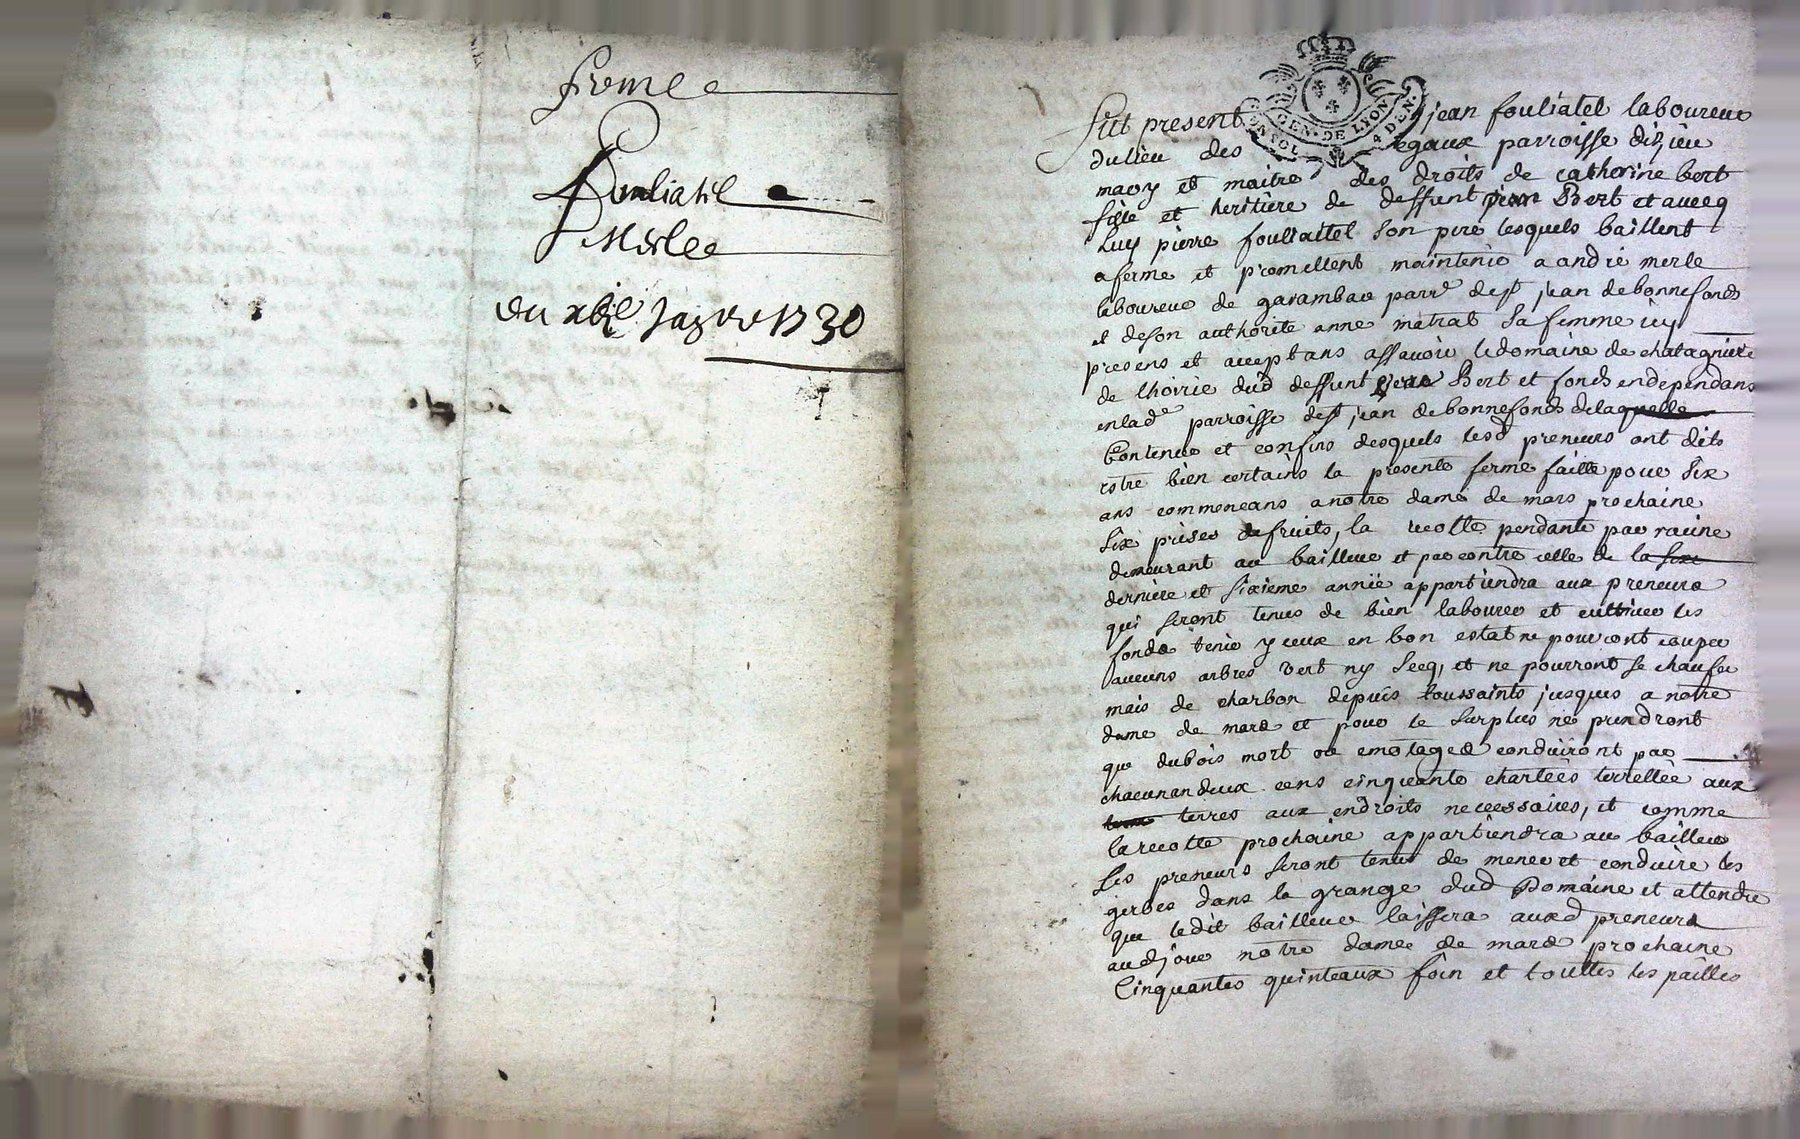 ferme
Fouliatel
Merle
du xbe Janvier 1730
GEN. DE LYON
4 DEN.
fut present jean fouliatel laboureur
du lieu des egaux parroisse dizieu
mary et maitre des droits de catherine bert
fille et heritiere de deffunt jean Bert et avecq
Luy pierre fouliattel son pere lesquels baillent
a ferme et promettent maintenir a andré merle
laboureur de garambau parre de st jean de bonnefonds
et de son authorite anne matrat sa femme icy
presens et acceptans assavoir le domaine de chatagniere
de lhoirie dud deffunt jean Bert et fonds en dependans
en lade parroisse de st jean de bonnefonds de laquelle
Contenue et confins desquels lesd preneurs ont dits
estre bien certains la presente ferme faitte pour six
ans commencans a notre dame de mars prochaine
six prises de fruits, la recolte pendante par racine
demeurant au bailleur et par contre celle de la six
derniere et sixieme année appartiendra aux preneurs
qui seront tenus de bien labourer et cultiver les
fonds tenir yceux en bon estat ne pourront couper
aucuns arbres vert ny secq, et ne pourront se chaufer
mais de charbon depuis toussaints jusques a notre
dame de mars et pour le surplus ne prendront
que du bois mort ou emotages conduiront par
chacun an deux cens cinquante charteés terrellée aux
terres aux endroits necessaires, et comme
la recolte prochaine appartiendra au bailleur
Les preneurs seront tenus de mener et conduire les
gerbes dans la grange dud Domaine et attendre
que ledit bailleur laissera auxd preneurs
aud jour notre dame de mars prochaine
Cinquantes quinteaux foin et touttes les pailles